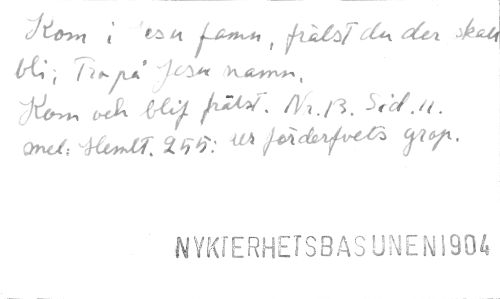 Kom i Jesu famn, frälst du der skall
bli; Tro på Jesu namn,
Kom och blif frälst. Nr. 13. Sid. 11.
mel: Hemlt. 255: ur förderfvets grop.
NYKTERHETSBASUNEN 1904